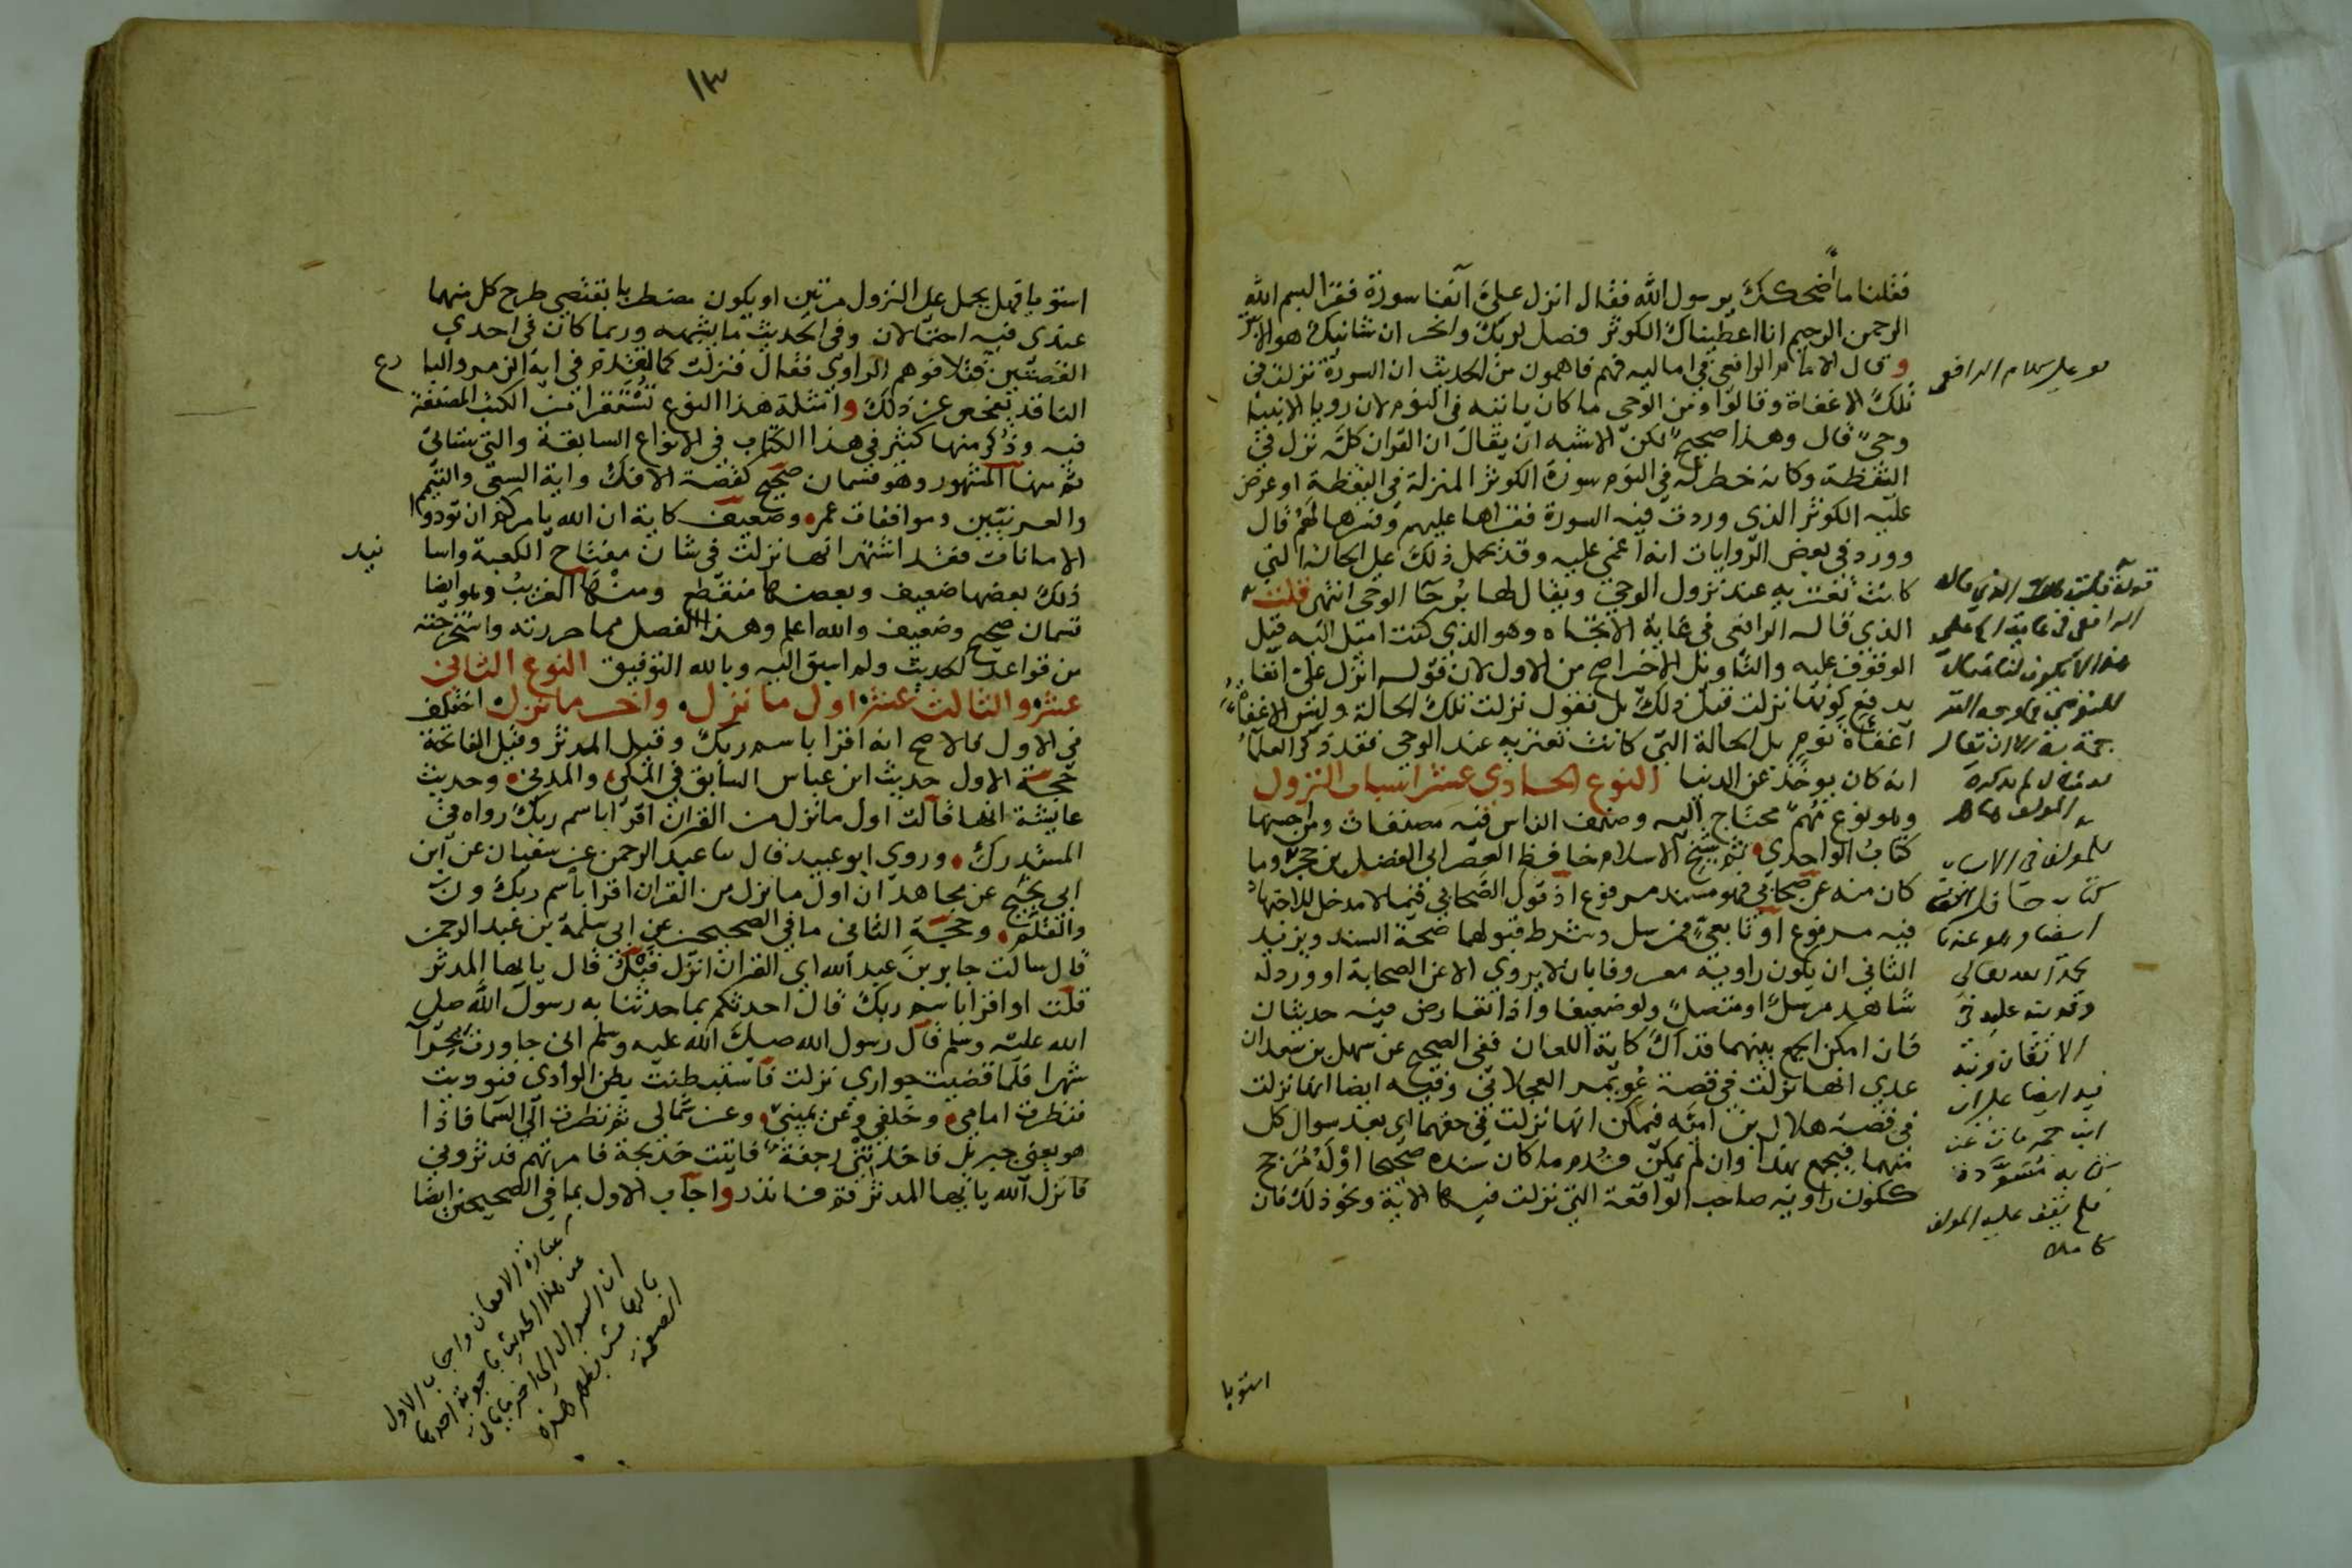 فقلنا ما أضحكك يرسول الله فقال انزل علي آنفا سورة فقرا بسم الله
الرحمن الرحيم انا اعطيناك الكوثر فصل لربك وانحر ان شانيك هو الابتر
و قال الامام الرافعي في اماليه فهم فاهمون من الحديث ان السورة نزلت في
تلك الاغفاة وقالوا ومن الوحي ما كان ياتيه في النوم لان رويا الانبيا
وحي قال وهذا صحيح لكن الاشبه ان يقال ان القران كله نزل في
اليقظة وكانه خطر له في النوم سورة الكوثر المنزلة في اليقظة او عرض
عليه الكوثر الذي وردت فيه السورة فقراها عليهم وفسرها لهم قال
وورد في بعض الروايات انه اغمي عليه وقد يحمل ذلك على الحالة التي
كانت تعتريه عند نزول الوحي ويقال لها برحا الوحي انتهى قلت
الذي قاله الرافعي في غاية الاتجاه وهو الذي كنت اميل اليه قبل
الوقوف عليه والتاويل الاخير اصح من الاول لان قوله انزل علي آنفا
يدفع كونها نزلت قبل ذلك بل نقول نزلت تلك الحالة وليس الاغفا
اغفاة نوم بل الحالة التي كانت تعتريه عند الوحي فقد ذكر العلما
انه كان يوخذ عن الدنيا النوع الحادي عشر اسباب النزول
وهو نوع مهم محتاج اليه وصنف الناس فيه مصنفات ومن احسنها
كتاب الواحدي ثم شيخ الاسلام حافظ العصر ابي الفضل بن حجر وما
كان منه عن صحابي فهو مسند مرفوع اذ قول الصحابي فيما لا مدخل للاجتهاد
فيه مرفوع او تابعي فمرسل وشرط قبولهما صحة السند ويزيد
الثاني ان يكون راويه معروفا بان لا يروي الا عن الصحابة او ورد له
شاهد مرسل او متصل ولو ضعيفا واذا تعارض فيه حديثان
فان امكن الجمع بينهما فذاك كاية اللعان ففي الصحيح عن سهل بن سعد ان
عدي انها نزلت في قصة عويمر العجلاني وفيه ايضا انها نزلت
في قصة هلال بن امية فيمكن انها نزلت في حقهما اي بعد سوال كل
منهما فيجمع بهذا وان لم يمكن قدم ما كان سنده صحيحا او له مرجح
ككون راويه صاحب الواقعة التي نزلت فيها الاية ونحو ذلك فان
استويا
على كلام الرافعي
قوله قلت الذي قاله
الرافعي في غاية
المولف
للمولف في الاسباب
كتاب
ايضا وهو عندنا
بحمد الله تعالى
وقد نبه عليه في
الاتقان
ايضا على ان
ابن حجر مات عن
كتابه مسودة
فلم يقف عليه المولف
كاملا
١٣
استويا فهل يحمل على النزول مرتين او يكون مضطربا يقتضي طرح كل منهما
عندي فيه احتمالان وفي الحديث ما يشبهه وربما كان في احدى
القصتين فتلا فوهم الراوي فقال فنزلت كما تقدم في اية الزمر والبا
الناقد يفحص عن ذلك وامثلة هذا النوع تستقرا من الكتب المصنفة
فيه وذكر منها كثير في هذا الكتاب في الانواع السابقة والتي ستاتي
ثم منها المشهور وهو قسمان صحيح كقصة الافك واية السعي والتيمم
والعرنيين وموافقات عمر وضعيف كاية ان الله يامركم ان تودوا
الامانات فقد اشتهر انها نزلت في شان مفتاح الكعبة واسا نيد
ذلك بعضها ضعيف وبعضها منقطع ومنها الغريب وهو ايضا
قسمان صحيح وضعيف والله اعلم وهذا الفصل مما حررته واستخرجته
من قواعد الحديث ولم اسبق اليه وبالله التوفيق النوع الثاني
عشر والثالث عشر اول ما نزل واخر ما نزل اختلف
في الاول فالاصح انه اقرا باسم ربك وقيل المدثر وقيل الفاتحة
حجة الاول حديث ابن عباس السابق في المكي والمدني وحديث
عايشة انها قالت اول ما نزل من القران اقرا باسم ربك رواه في
المستدرك وروى ابو عبيد قال سا عبد الرحمن عن سفيان عن ابن
ابي نجيح عن مجاهد ان اول ما نزل من القران اقرا باسم ربك ون
والقلم وحجة الثاني ما في الصحيحين عن ابي سلمة بن عبد الرحمن
قال سالت جابر بن عبد الله اي القران انزل قبل قال يايها المدثر
قلت او اقرا باسم ربك قال احدثكم بما حدثنا به رسول الله صلى
الله عليه وسلم قال رسول الله صلى الله عليه وسلم اني جاورت بحرا
شهرا فلما قضيت جواري نزلت فاستبطنت بطن الوادي فنوديت
فنظرت امامي وخلفي وعن يميني وعن شمالي ثم نظرت الى السما فاذا
هو يعني جبريل فاخذتني رجفة فاتيت خديجة فامرتهم فدثروني
فانزل الله يايها المدثر قم فانذر واجاب الاول بما في الصحيحين ايضا
عبارة الاتقان واجاب الاول
عن هذا الحديث باجوبة احدها
ان السوال